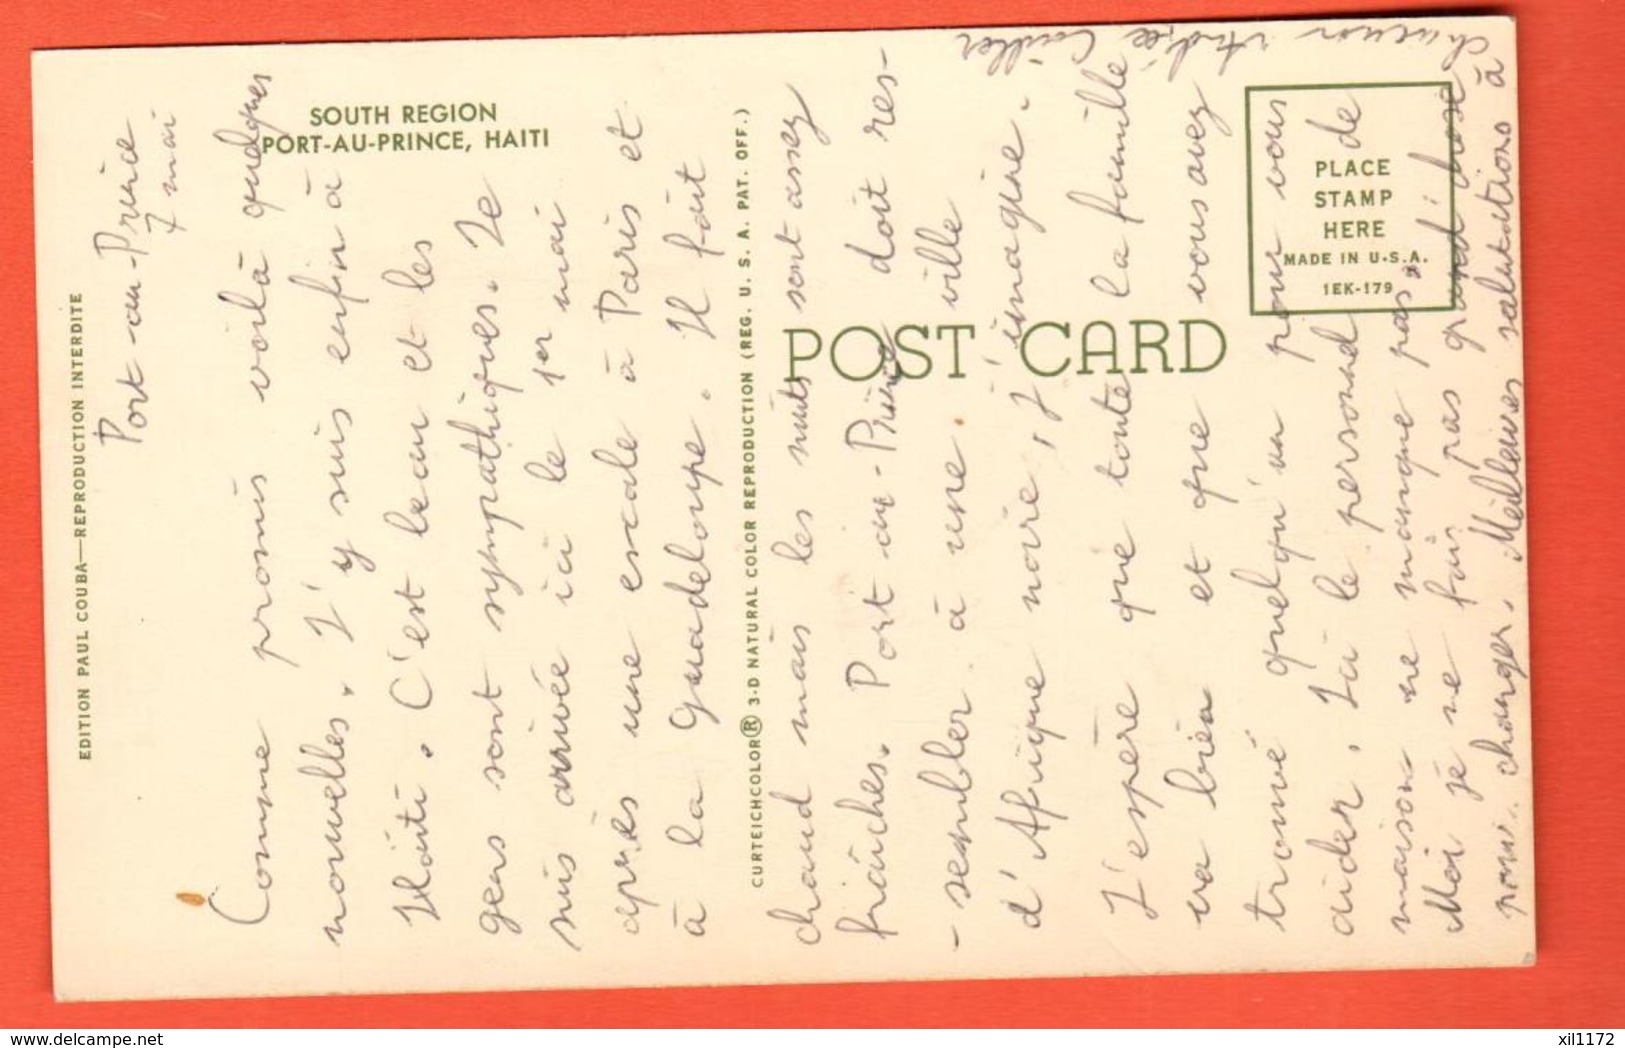 SOUTH REGION
PORT-AU-PRINCE, HAITI
EDITION PAUL COUBA—REPRODUCTION INTERDITE
CURTEICHCOLOR® 3-D NATURAL COLOR REPRODUCTION (REG. U. S. A. PAT. OFF.)
POST CARD
PLACE
STAMP
HERE
MADE IN U.S.A.
1EK-179
Port-au-Prince
7 mai
Comme promis voilà quelques
nouvelles. J'y suis enfin à
Haïti. C'est beau et les
gens sont sympathiques. Je
suis arrivée ici le 1er mai
après une escale à Paris et
à la Guadeloupe. Il fait
chaud mais les nuits sont assez
fraîches. Port-au-Prince doit res-
-sembler à une ville
d'Afrique noire, j'imagine.
J'espère que toute la famille
va bien et que vous avez
trouvé quelqu'un pour vous
aider. Ici le personnel de
maison ne manque pas.
Moi je ne fais pas grand'chose
pour changer. Meilleures salutations à
chacun Andrée
www.delcampe.net
xil1172